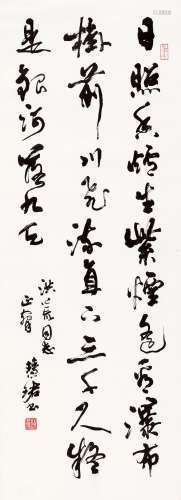 日照香炉生紫烟遥看瀑布
挂前川飞流直下三千尺疑
是银河落九天
同志
正腕
书